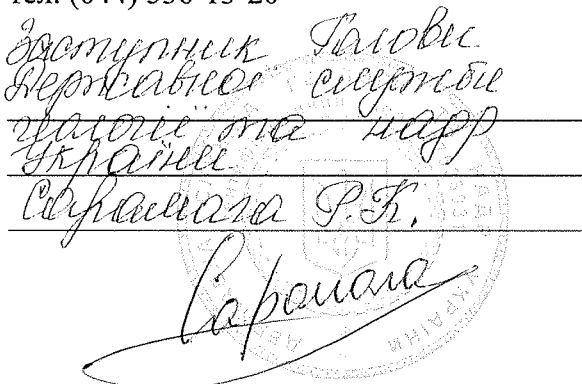 тел. (044) 536-13-20
Заступник Голови
Державної служби
геології та надр
України
Сарамага Р.К.
Сарамага